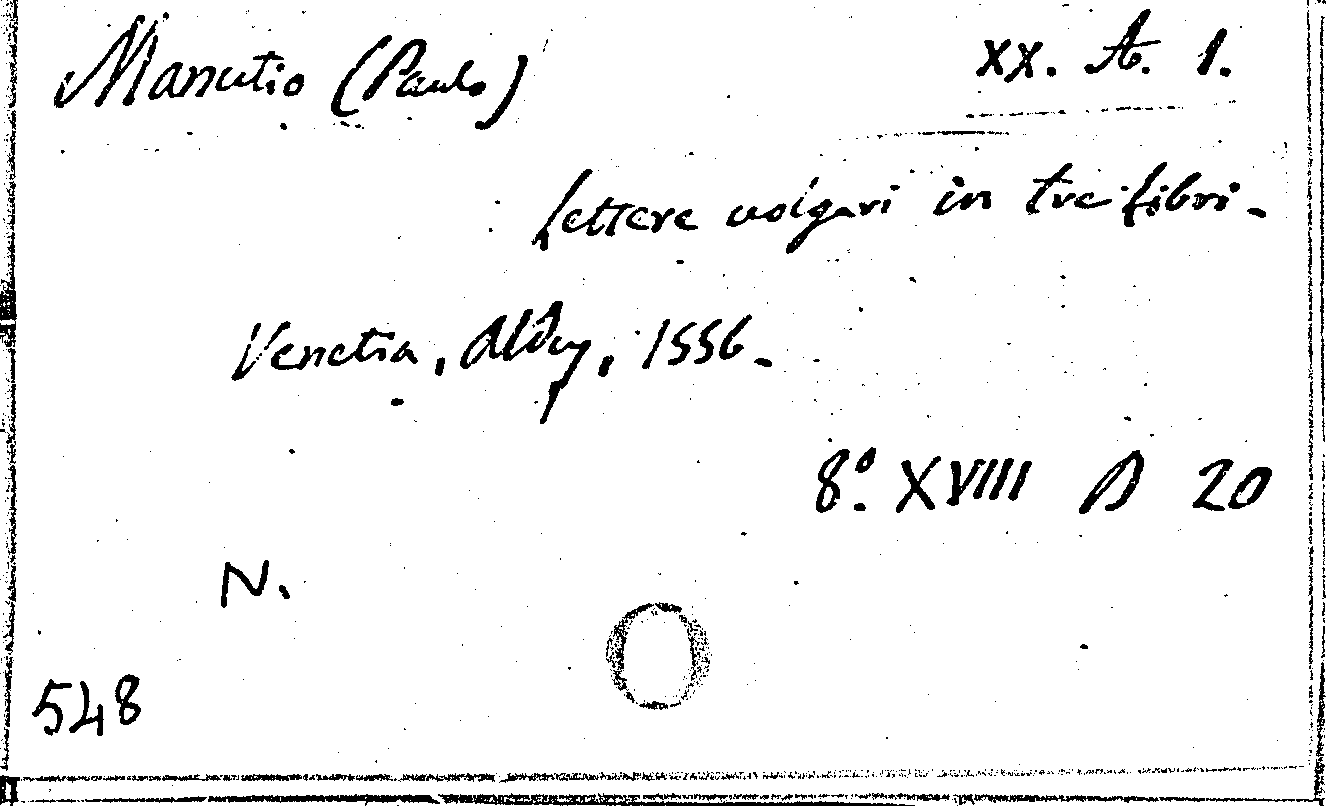 Manutio (Paulo)
XX. A. 1.
Lettere volgari in tre libri.
Venetia, Aldus, 1556.
8º. XVIII A 20
N.
548